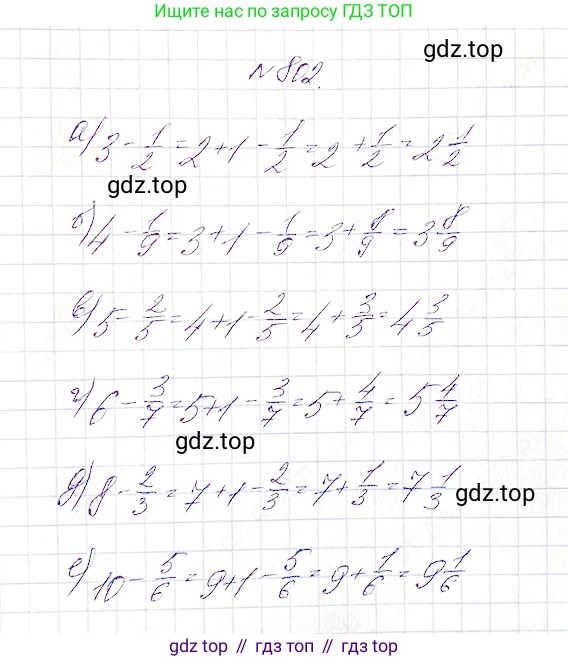 Ищите нас по запросу ГДЗ ТОП
gdz.top
№802.
а) 3 - 1/2 = 2 + 1 - 1/2 = 2 + 1/2 = 2 1/2
gdz.top
б) 4 - 1/9 = 3 + 1 - 1/9 = 3 + 8/9 = 3 8/9
в) 5 - 2/5 = 4 + 1 - 2/5 = 4 + 3/5 = 4 3/5
г) 6 - 3/7 = 5 + 1 - 3/7 = 5 + 4/7 = 5 4/7
gdz.top
д) 8 - 2/3 = 7 + 1 - 2/3 = 7 + 1/3 = 7 1/3
gdz.top
е) 10 - 5/6 = 9 + 1 - 5/6 = 9 + 1/6 = 9 1/6
gdz.top // гдз топ // gdz.top